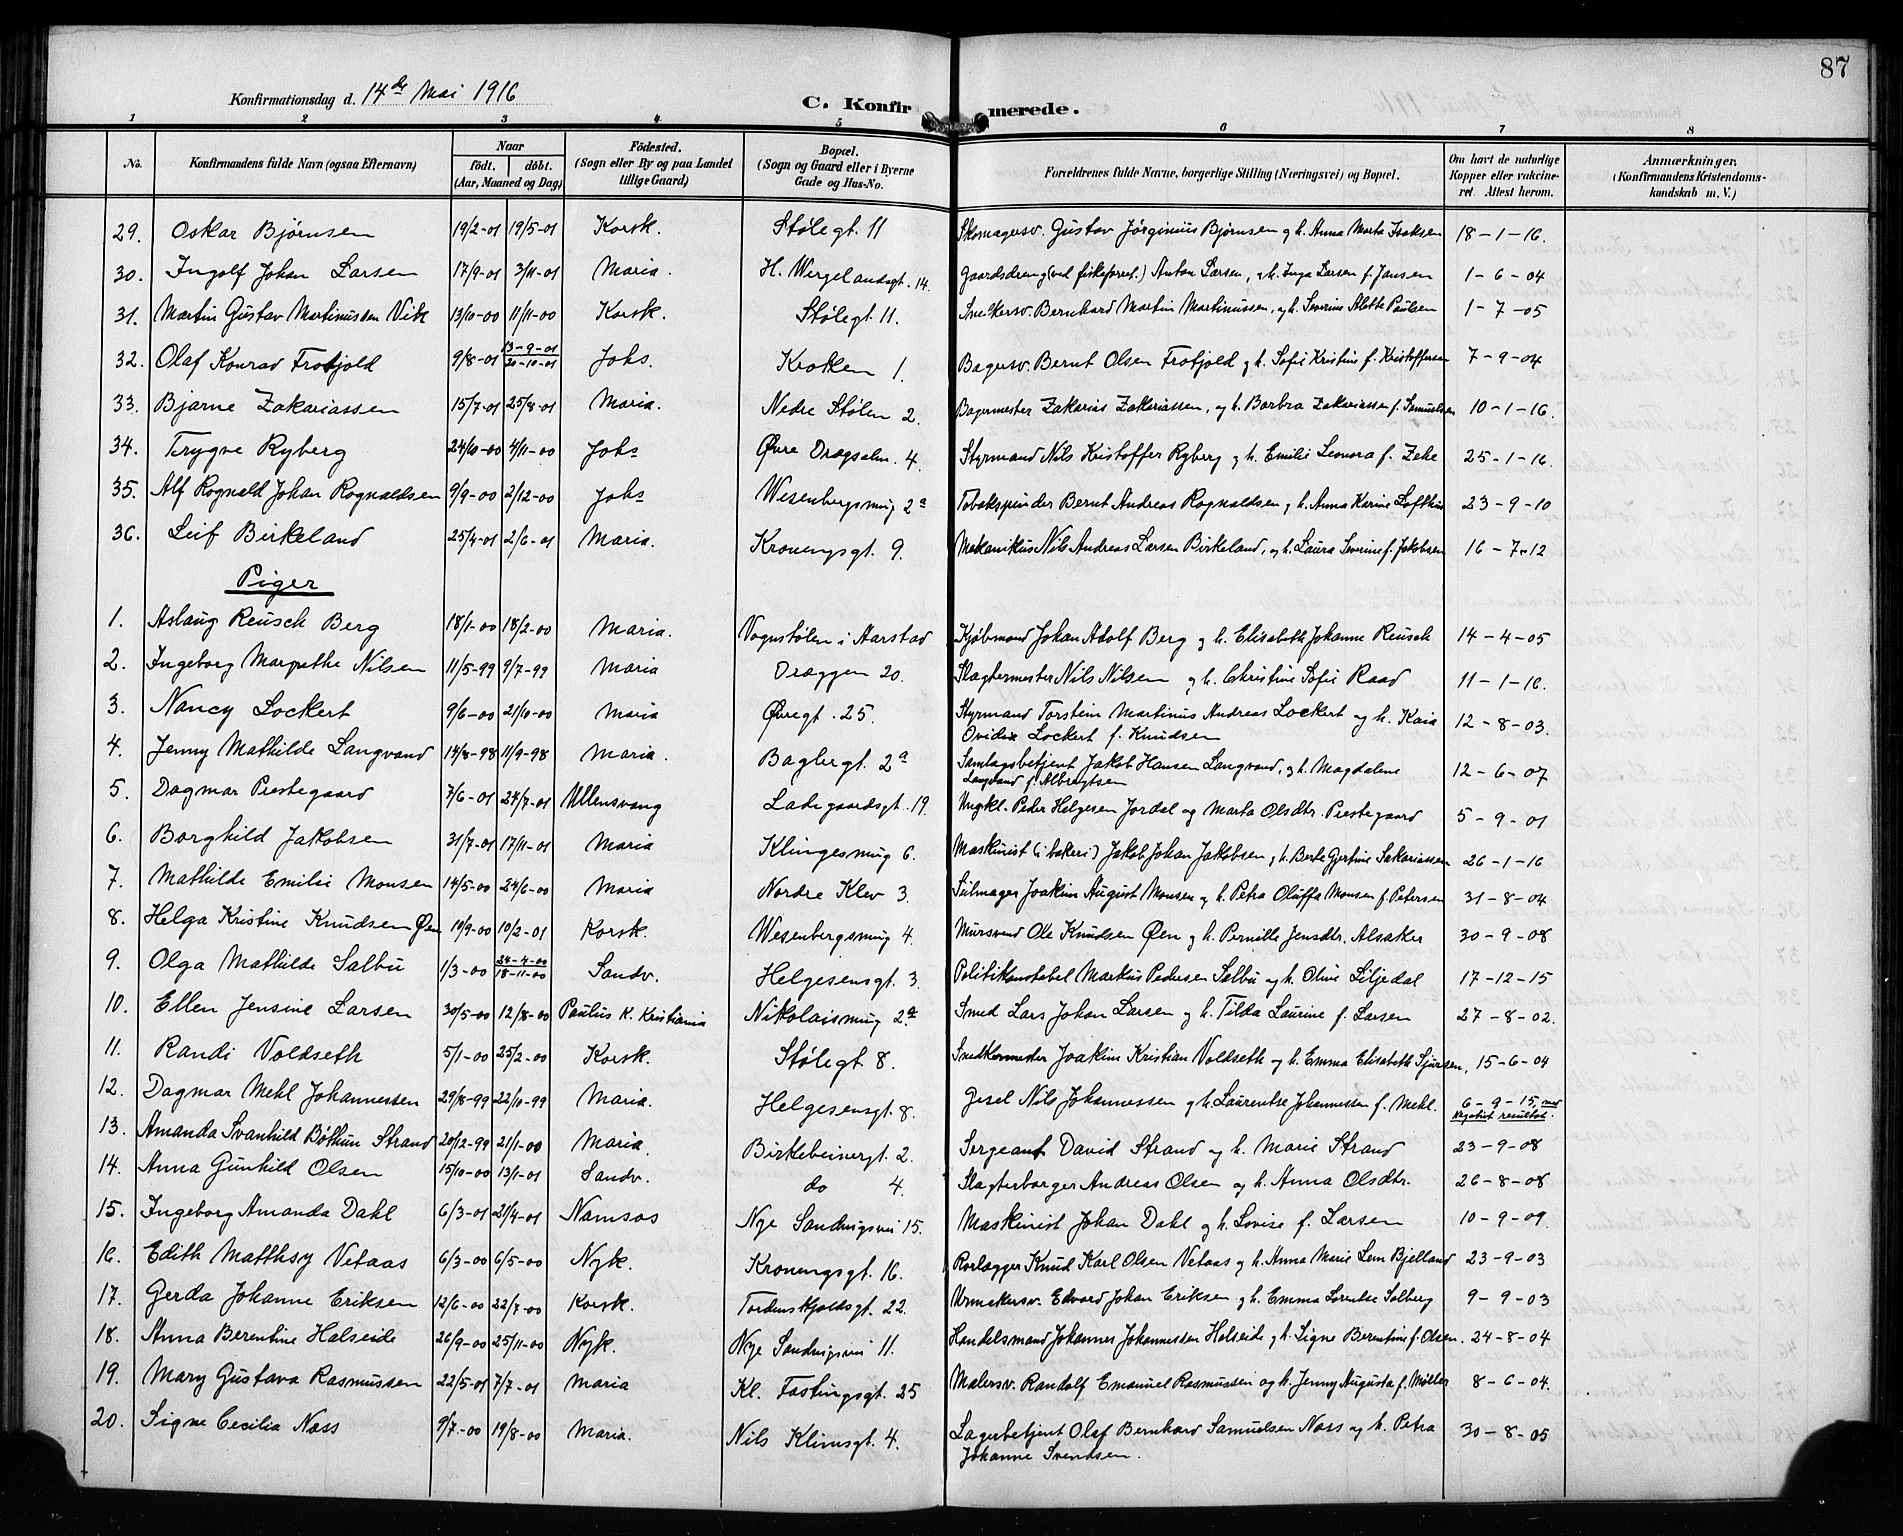 87
Konfirmationsdag d. 14de Mai 1916
C. Konfirmerede.
1 2 3 4 5 6 7 8
No. Konfirmandens fulde Navn (ogsaa Efternavn) Naar født. døbt. (Aar, Maaned og Dag) Fødested. (Sogn eller By og paa Landet tillige Gaard) Bopæl. (Sogn og Gaard eller i Byerne Gade og Hus-No. Forældrenes fulde Navne, borgerlige Stilling (Næringsvei) og Bopæl. Om havt de naturlige Kopper eller vakcineret. Attest herom. Anmærkninger. (Konfirmandens Kristendomskundskab m. V.)
29. Oskar Bjørnsen 19/2-01 19/5-01 Korsk. Stølegt. 11 Skomagersv. Gustav Jørginius Bjørnsen og h. Anna Marta Isaksen 18-1-16.
30. Ingolf Johan Larsen 17/9-01 3/11-01 Maria. H. Wergelandsgt. 14. Gaardsdreng (ved fiskeforret.) Anton Larsen, og h. Inga Larsen f. Jansen 1-6-04
31. Martin Gustav Martinussen Vik 13/10-00 11/11-00 Korsk. Stølegt. 11. Snekkersv. Bernhard Martin Martinussen, og h. Severine Alette Paulsen 1-7-05
32. Olaf Konrad Frotjold 9/8-01 13-9-01 20-10-01 Johs. Kroken 1. Bagersv. Bernt Olsen Frotjold og h. Sofie Kristine f. Kristoffersen 7-9-04
33. Bjarne Zakariassen 15/7-01 25/8-01 Maria. Nedre Stølen 2. Bagermester Zakarias Zakariassen, og h. Barbra Zakariassen f. Samuelsen 10-1-16.
34. Trygve Ryberg 24/10-00 4/11-00 Johs Øvre Dragsalm. 4. Styrmand Nils Kristoffer Ryberg og h. Emilie Leonora f. Zeke 25-1-16.
35. Alf Rognald Johan Rognaldsen 9/9-00 2/12-00 Johs Wesenbergsmug 2a Tobakspinder Bernt Andreas Rognaldsen og h. Anna Karine Lofthus 23-9-10
36. Leif Birkeland 25/4-01 2/6-01 Maria. Kroningsgt. 9. Mekanikus Nils Andreas Larsen Birkeland, og h. Laura Severine f. Jakobsen 16-7-12
Piger
1. Aslaug Reusch Berg 18/1-00 18/2-00 Maria. Vognstølen i Aarstad Kjøbmand Johan Adolf Berg og h. Elisabeth Johanne Reusch 14-4-05
2. Ingeborg Margrethe Nilsen 11/5-99 9/7-99 Maria Dræggen 20. Slagtermester Nils Nilsen og h. Christine Sofie Raad 11-1-16.
3. Nancy Lockert 9/6-00 21/10-00 Maria Øvregt. 25. Styrmand Torstein Martinus Andreas Lockert og h. Kaia 12-8-03.
Ovidia Lockert f. Knudsen
4. Jenny Mathilde Langvand 14/8-98 11/9-98 Maria. Baglergt. 2a Samlagsbetjent Jakob Hansen Langvand, og h. Magdalene 12-6-07
Langvand f. Albregtsen
5. Dagmar Prestegaard 7/6-01 24/7-01 Ullensvang Ladegaardsgt. 19. Ungkl. Peder Helgesen Jordal og Marta Olsdtr. Prestegaard 5-9-01
6. Borghild Jakobsen 31/7-01 17/11-01 Maria Klingesmug 6. Maskinist (i bakeri) Jakob Johan Jakobsen og h. Berte Gjertine Sakariassen 26-1-16
7. Mathilde Emilie Monsen 14/5-00 24/6-00 Maria Nordre Klev 3. Seilmager Joakim August Monsen og h. Petra Oluffa Monsen f. Petersen 31-8-04
8. Helga Kristine Knudsen Øen 10/9-00 10/2-01 Korsk. Wesenbergsmug 4. Mursvend Ole Knudsen Øen og h. Pernille Jensdtr. Alsaker 30-9-08
9. Olga Mathilde Salbu 1/3-00 24-4-00 18-11-00 Sandv. Helgesensgt. 3. Politikonstabel Markus Pedersen Salbu og h. Oline Siljedal 17-12-15
10. Ellen Jensine Larsen 30/5-00 12/8-00 Paulus K. Kristiania Nikolaismug 2a Smed Lars Johan Larsen og h. Tilda Laurine f. Larsen 27-8-02.
11. Randi Voldseth 5/1-00 25/2-00 Korsk. Stølegt. 8. Snedkermester Joakim Kristian Voldseth og h. Emma Elisabeth Sjursen, 15-6-04
12. Dagmar Mehl Johannessen 29/8-99 22/10-99 Maria. Helgesensgt. 8. Gjesel Nils Johannessen og h. Laurentse Johannessen f. Mehl. 6-9-15, med negativt resultat.
13. Amanda Svanhild Bøthun Strand 20/12-99 21/1-00 Maria. Birkebeinergt. 2. Sergeant David Strand og h. Marie Strand 23-9-08
14. Anna Gunhild Olsen 15/10-00 13/1-01 Sandv. do 4. Slagterborger Andreas Olsen og h. Anna Olsdtr. 26-8-08
15. Ingeborg Amanda Dahl 6/3-01 21/4-01 Namsos Nye Sandvigsvei 15. Maskinist Johan Dahl og h. Lovise f. Larsen 10-9-09.
16. Edith Matthsy Vetaas 6/3-00 6/5-00 Nyk. Kroningsgt. 16. Rørlægger Knud Karl Olsen Vetaas og h. Anna Marie Lem Bjelland 23-9-03
17. Gerda Johanne Eriksen 12/6-00 22/7-00 Korsk. Tordenskjoldsgt. 22. Urmakersv. Edvard Johan Eriksen og h. Emma Lorentse Solberg 9-9-03
18. Anna Berentine Halseide 26/9-00 25/11-00 Nyk. Nye Sandvigsvei 11. Handelsmand Johannes Johannessen Halseide og h. Signe Berentine f. Olsen. 24-8-04
19. Mary Gustava Rasmussen 22/5-01 7/7-01 Maria Kl. Fastingsgt. 25 Malersv. Randolf Emanuel Rasmussen og h. Jenny Augusta f. Møller 8-6-04.
20. Signe Cecilia Næss 9/7-00 19/8-00 Maria. Nils Klimsgt. 4. Lagerbetjent Olaf Bernhard Samuelsen Næss og h. Petra 30-8-05
Johanne Svendsen.